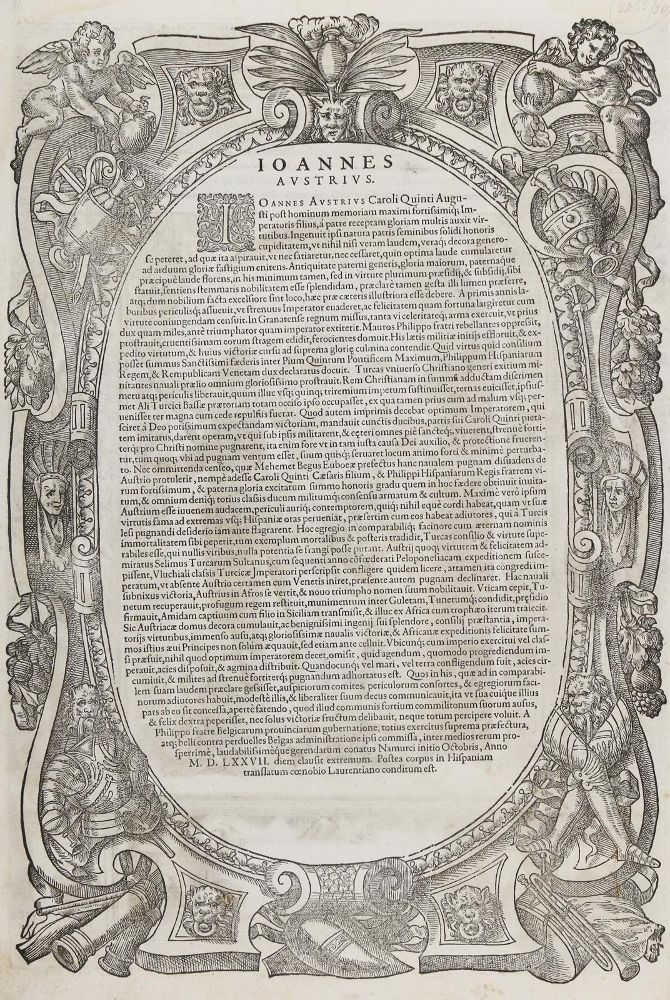 IOANNES
AVSTRIVS.
IOANNES AVSTRIVS Caroli Quinti Augu-
sti post hominum memoriam maximi fortissimiq; Im-
peratoris filius, à patre receptam gloriam multis auxit vir-
tutibus. Ingenuit ipsi natura patris seminibus solidi honoris
cupiditatem, vt nihil nisi veram laudem, veraq; decora genero-
se peteret, ad quæ ita aspirauit, vt nec satiaretur, nec cessaret, quin optima laude cumularetur
ad arduum gloriæ fastigium enitens. Antiquitate paterni generis, gloria maiorum, paternaque
præcipuè laude florens, in his minimum tamen, sed in virtute plurimum præsidij, & subsidij, sibi
statuit, sentiens stemmatis nobilitatem esse splendidam, præclarè tamen gesta illi lumen præferre,
atq; dum nobilium facta excelsiore sint loco, hæc præ cæteris illustriora esse debere. A primis annis la-
boribus periculisq; assueuit, vt strenuus Imperator euaderet, ac felicitatem quam fortuna largiretur cum
virtute coniungendam censuit. In Granatense regnum missus, tanta vi celeritateq; arma exercuit, vt prius
dux quam miles, antè triumphator quam imperator extiterit. Mauros Philippo fratri rebellantes oppressit,
prostrauit, cruentissimam eorum stragem edidit, ferocientes domuit. His lætis militiæ initijs effloruit, & ex-
pedito virtutum, & huius victoriæ cursu ad supremæ gloriæ culmina contendit. Quid virtus quid consilium
posset summus Sanctissimi fœderis inter Pium Quintum Pontificem Maximum, Philippum Hispaniarum
Regem, & Rempublicam Venetam dux declaratus docuit. Turcas vniuerso Christiano generi exitium mi-
nitantes nauali prælio omnium gloriosissimo prostrauit. Rem Christianam in summũ adductam discrimen
metu atq; periculis liberauit, quum illuc vsq; quinq; triremium impetum sustinuisset, ternas euicisset, ipsius-
met Ali Turcici Bassæ prætoriam totam occisio ipso occupasset, ex qua tamen prius cum ad malum vsq; per-
uenisset ter magna cum cede repulsus fuerat. Quod autem imprimis decebat optimum Imperatorem, qui
sciret à Deo potissimum expectandam victoriam, mandauit cunctis ducibus, partis sui Caroli Quinti pieta-
tem imitatus, darent operam, vt qui sub ipsis militarent, & ceteri omnes piè sanctèq; viuerent, strenuè forti-
terq; pro Christi nomine pugnarent, ita enim fore vt in tam iusta causa Dei auxilio, & protectione frueren-
tur, tum quoq; vbi ad pugnam ventum esset, suum quisq; seruaret locum animo forti & minimè perturba-
to. Nec omittenda censeo, quæ Mehemet Begus Euboæ præfectus hanc naualem pugnam disuadens de
Austrio protulerit, nempè adesse Caroli Quinti Cæsaris filium, & Philippi Hispaniarum Regis fratrem vi-
rum fortissimum, & paterna gloria excitatum summo honoris gradu quem in hoc fædere obtinuit inuita-
tum, & omnium deniq; totius classis ducum militumq; consensu armatum & cultum. Maximè verò ipsum
Austrium esse iuuenem audacem, periculi auriq; contemptorem, quiq; nihil equè cordi habeat, quam vt suæ
virtutis fama ad extremas vsq; Hispaniæ oras perueniat, præsertim cum eos habeat adiutores, qui à Turcis
lesi pugnandi desiderio iam ante flagrarent. Hac egregio in comparabiliq; facinore cum æternam nominis
immortalitatem sibi peperit, tum exemplum mortalibus & posteris tradidit, Turcas consilio & virtute supe-
rabiles esse, qui nullis viribus, nulla potentia se frangi posse putant. Austrij quoq; virtutem & felicitatem ad-
miratus Selimus Turcarum Sultanus, cum sequenti anno cõfœderati Peloponesiacam expeditionem susce-
pissent, Vluchiali classis Turcicæ Imperatori perscripsit confligere quidem licere, attamen ita congredi im-
peratum, vt absente Austrio certamen cum Venetis iniret, præsente autem pugnam declinaret. Hac nauali
subnixus victoria, Austrius in Afros se vertit, & nouo triumpho nomen suum nobilitauit. Vticam cepit, Tu-
netum recuperauit, profugum regem restituit, munimentum inter Guletam, Tunetumq; condidit, præsidio
firmauit, Amidam captiuum cum filio in Siciliam transmisit, & illuc ex Africa cum trophæo iterum traiecit.
Sic Austriacæ domus decora cumulauit, ac benignissimi ingenij sui splendore, consilij præstantia, impera-
torijs virtutibus, immenso ausu, atq; gloriosissimæ naualis victoriæ, & Africanæ expeditionis felicitate sum-
mos istius æui Principes non solùm æquauit, sed etiam ante celluit. Vbicunq; cum imperio exercitui vel clas-
si præfuit, nihil quod optimum imperatorem decet, omisit, quid agendum, quomodo progrediendum im-
perauit, acies disposuit, & agmina distribuit. Quandocunq; vel mari, vel terra confligendum fuit, acies cir-
cumiuit, & milites ad strenuè fortiterq; pugnandum adhortatus est. Quos in his, quæ ad in comparabi-
lem suam laudem præclarè gessisset, auspiciorum comites, periculorum consortes, & egregiorum faci-
norum adiutores habuit, modestè illis, & liberaliter suum decus communicauit, ita vt sua cuique illius
pars ab eo sit concessa, apertè fatendo, quod illud communis fortium commilitonum suorum ausus,
& felix dextra peperisset, nec solus victoriæ fructum delibauit, neque totum percipere voluit. A
Philippo fratre Belgicarum prouinciarum gubernatione, totius exercitus suprema præfectura,
atq; belli contra perduelles Belgas administratione ipsi commissa, inter medios rerum pro-
sperrimè, laudabilissimèque gerendarum conatus Namurci initio Octobris, Anno
M. D. LXXVII. diem clausit extremum. Postea corpus in Hispaniam
translatum cœnobio Laurentiano conditum est.